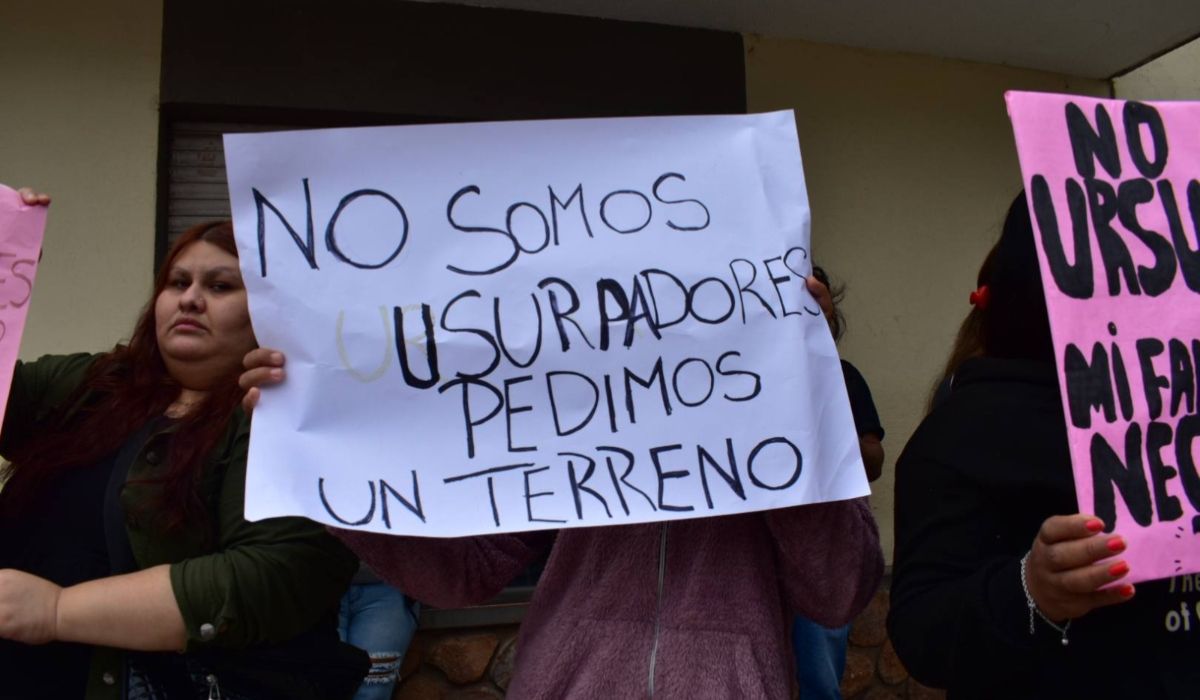 NO SOMOS
USURPADORES
PEDIMOS
UN TERRENO
NO
URSU
MI FA
NEC
of